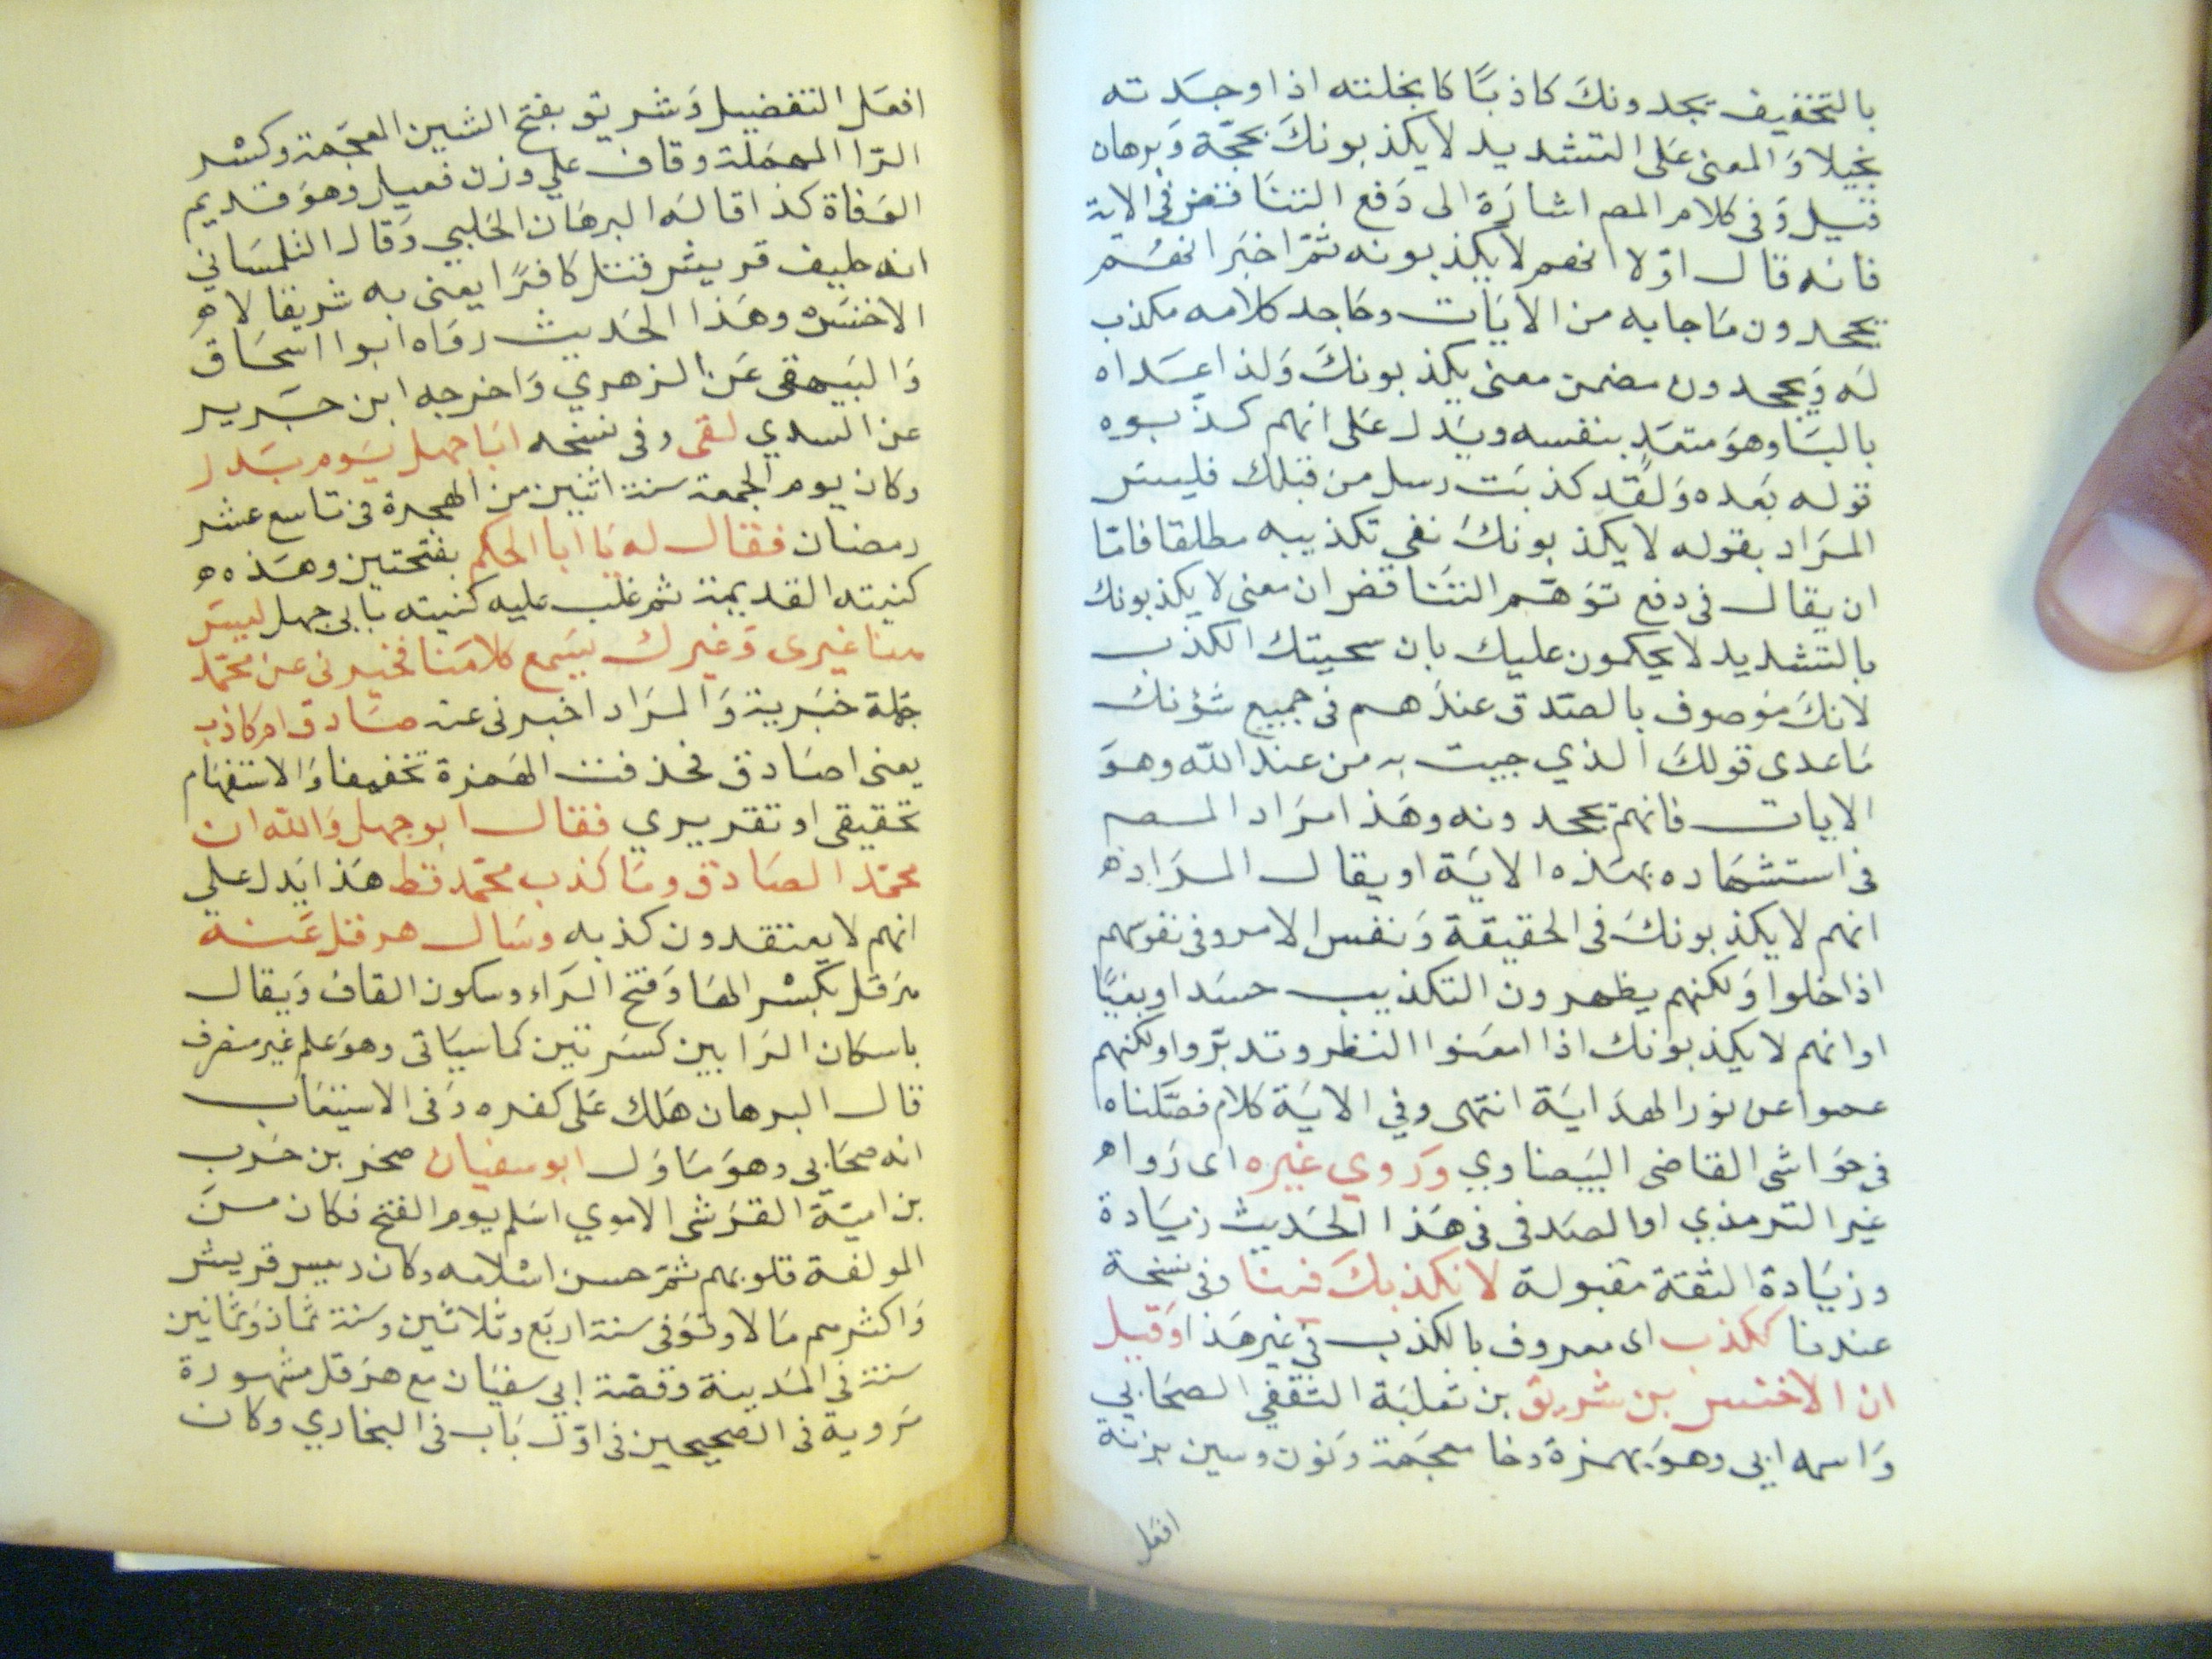 بالتخفيف يجدونك كاذبًا كابخلته اذا وجدته
بخيلا والمعنى على التشديد لا يكذبونك بحجة وبرهان
قيل وفى كلام المصم اشارة الى دفع التناقض فى الاية
فانه قال اولا انهم لا يكذبونه ثم اخبر انهم
يجحدون ما جابه من الايات وجاحد كلامه مكذب
له ويجحدون مضمن معنى يكذبونك ولذا عداه
بالبا وهو متعد بنفسه ويدل على انهم كذبوه
قوله بعده ولقد كذبت رسل من قبلك فليس
المراد بقوله لا يكذبونك نفي تكذيبه مطلقا فامّا
ان يقال فى دفع توهم التناقض ان معنى لا يكذبونك
بالتشديد لا يحكمون عليك بان سجيتك الكذب
لانك موصوف بالصدق عندهم فى جميع شؤنك
ما عدى قولك الذي جيت به من عند الله وهو
الايات فانهم يجحدونه وهذا مراد المصم
فى استشهاده بهذه الاية او يقال المراد
انهم لا يكذبونك فى الحقيقة ونفس الامر وفى نفوسهم
اذا خلوا ولكنهم يظهرون التكذيب حسدا وبغيًا
او انهم لا يكذبونك اذا امعنوا النظر وتدبّروا ولكنهم
عموا عن نور الهداية انتهى وفي الاية كلام فصّلناه
فى حواشى القاضى البيضاوي وروي غيره اى رواه
غير الترمذي او الصدفى فى هذا الحديث زيادة
وزيادة الثقة مقبولة لا نكذبك فينا وفى نسخة
عندنا بمكذب اى معروف بالكذب في غير هذا وقيل
ان الاخنس بن شريق بن ثعلبة الثقفي الصحابي
واسمه ابي وهو بهمزة وخا معجمة ونون وسين بزنة
افعل
افعل التفضيل وشريق بفتح الشين المعجمة وكسر
الرّا المهملة وقاف علي وزن فعيل وهو قديم
الوفاة كذا قاله البرهان الحلبي وقال التلمساني
انه حليف قريش قتل كافرًا يعنى به شريقا لا
الاخنس وهذا الحديث رواه ابوا اسحاق
والبيهقى عن الزهري واخرجه ابن جرير
عن السدي لقى وفى نسخه ابا جهل يوم بدر
وكان يوم الجمعة سنة اثنين من الهجرة فى تاسع عشر
رمضان فقال له يا ابا الحكم بفتحتين وهذه
كنيته القديمة ثم غلب عليه كنيته بابى جهل ليس
هنا غيرى وغيرك يسمع كلامنا فخبرنى عن محمّد
جملة خبرية والمراد اخبرنى عنه صادق ام كاذب
يعنى اصادق فحذفت الهمزة تخفيفا والاستفهام
تحقيقى او تقريري فقال ابو جهل والله ان
محمّد الصادق وما كذب محمّد قط هذا يدل علي
انهم لا يعتقدون كذبه وسال هرقل عنه
هرقل بكسر الها وفتح الراء وسكون القاف ويقال
باسكان الرا بين كسرتين كما سياتى وهو علم غير منصرف
قال البرهان هلك على كفره وفى الاستيعاب
انه صحابي وهو ماول ابو سفيان صخر بن حرب
بن امية القرشى الاموي اسلم يوم الفتح فكان من
المولفة قلوبهم ثم حسن اسلامه وكان رييس قريش
واكثرهم مالا وتوفى سنة اربع وثلاثين وسنة ثمان وثمانين
سنة فى المدينة وقصة ابي سفيان مع هرقل مشهورة
مروية فى الصحيحين فى اول باب فى البخاري وكان